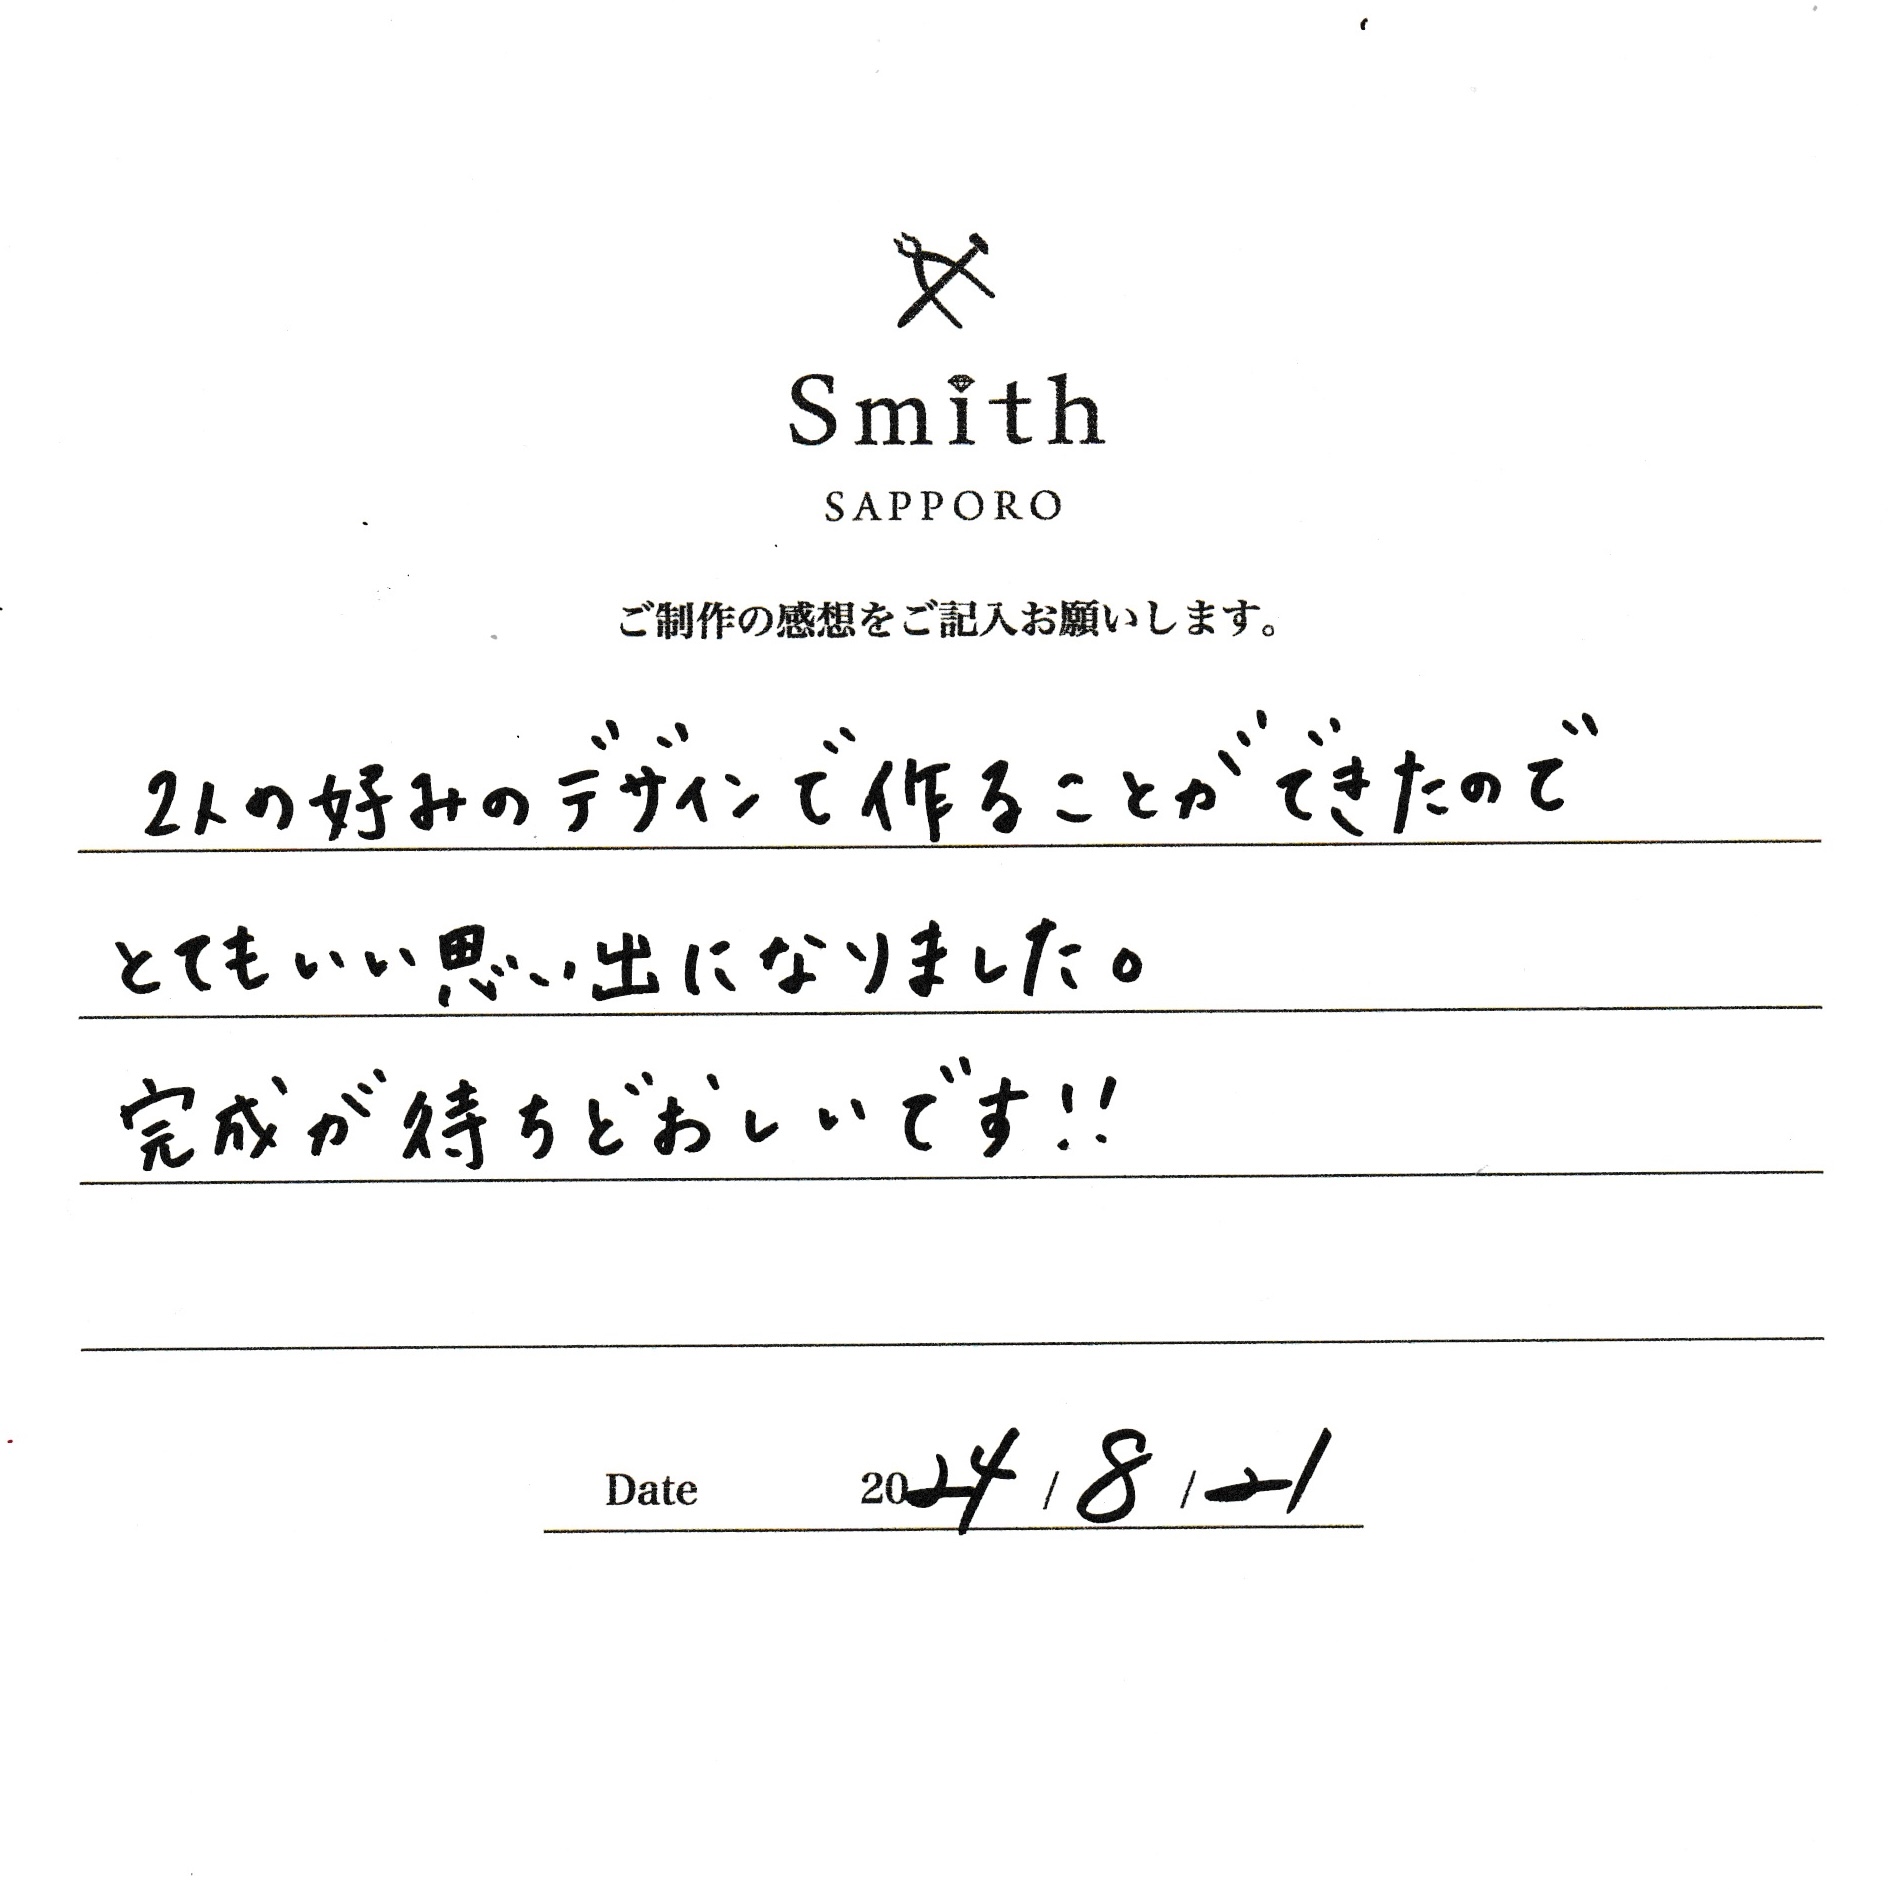 Smith
SAPPORO
ご制作の感想をご記入お願いします。
2人の好みのデザインで作ることができたので
とてもいい思い出になりました。
完成が待ちどおしいです!!
Date 2024 / 8 / 21